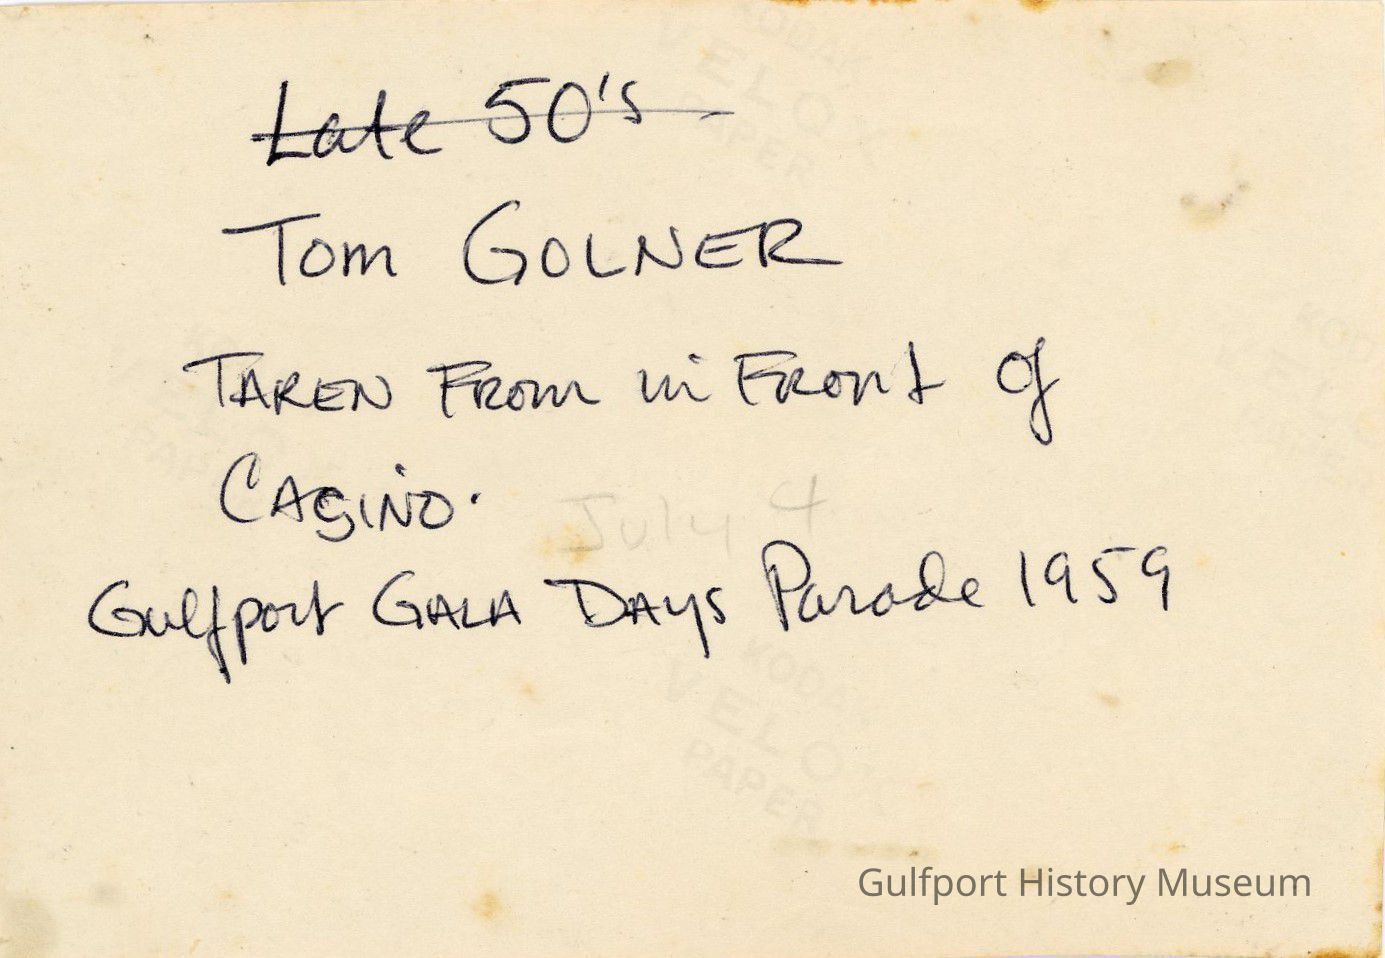 KODAK
VELOX
PAPER
Late 50's
Tom GOLNER
TAKEN FROM in FRONT of
CASINO.
July 4
Gulfport GALA DAYS Parade 1959
KODAK
VELOX
PAPER
Gulfport History Museum